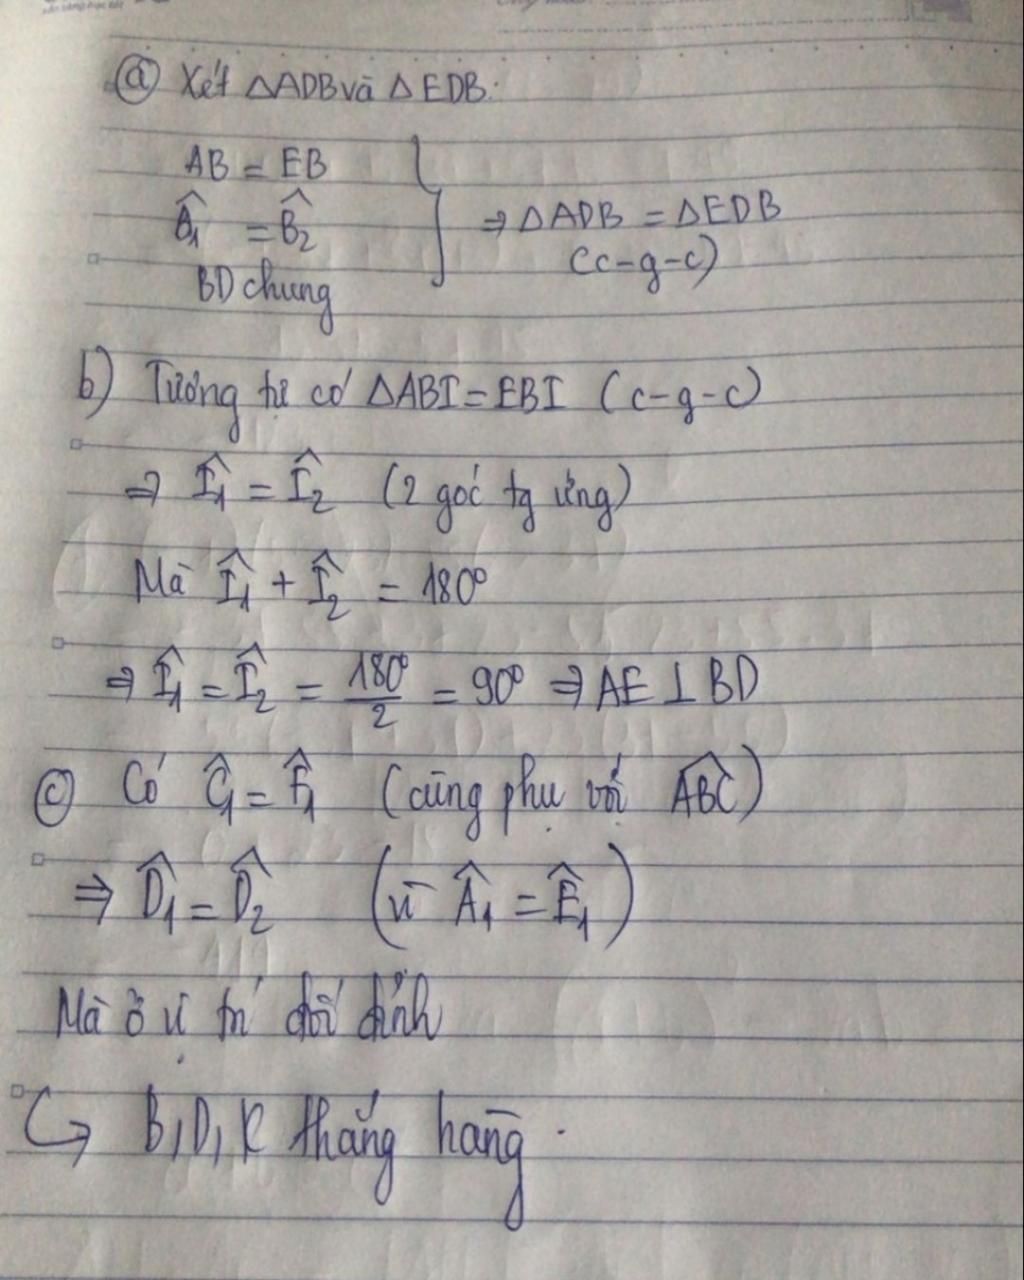 ⓐ Xét ΔADB và ΔEDB:
AB = EB
B̂₁ = B̂₂
⇒ ΔADB = ΔEDB
BD chung
(c-g-c)
b) Tương tự có ΔABI = EBI (c-g-c)
⇒ Î₁ = Î₂ (2 góc tg ứng)
Mà Î₁ + Î₂ = 180°
⇒ Î₁ = Î₂ = 180°/2 = 90° ⇒ AE ⊥ BD
ⓒ Có Ĉ₁ = F̂₁ (cùng phụ với ABC̑)
⇒ D̂₁ = D̂₂ (vì Â₁ = Ê₁)
Mà ở vị trí đối đỉnh
↪ B, D, K thẳng hàng.